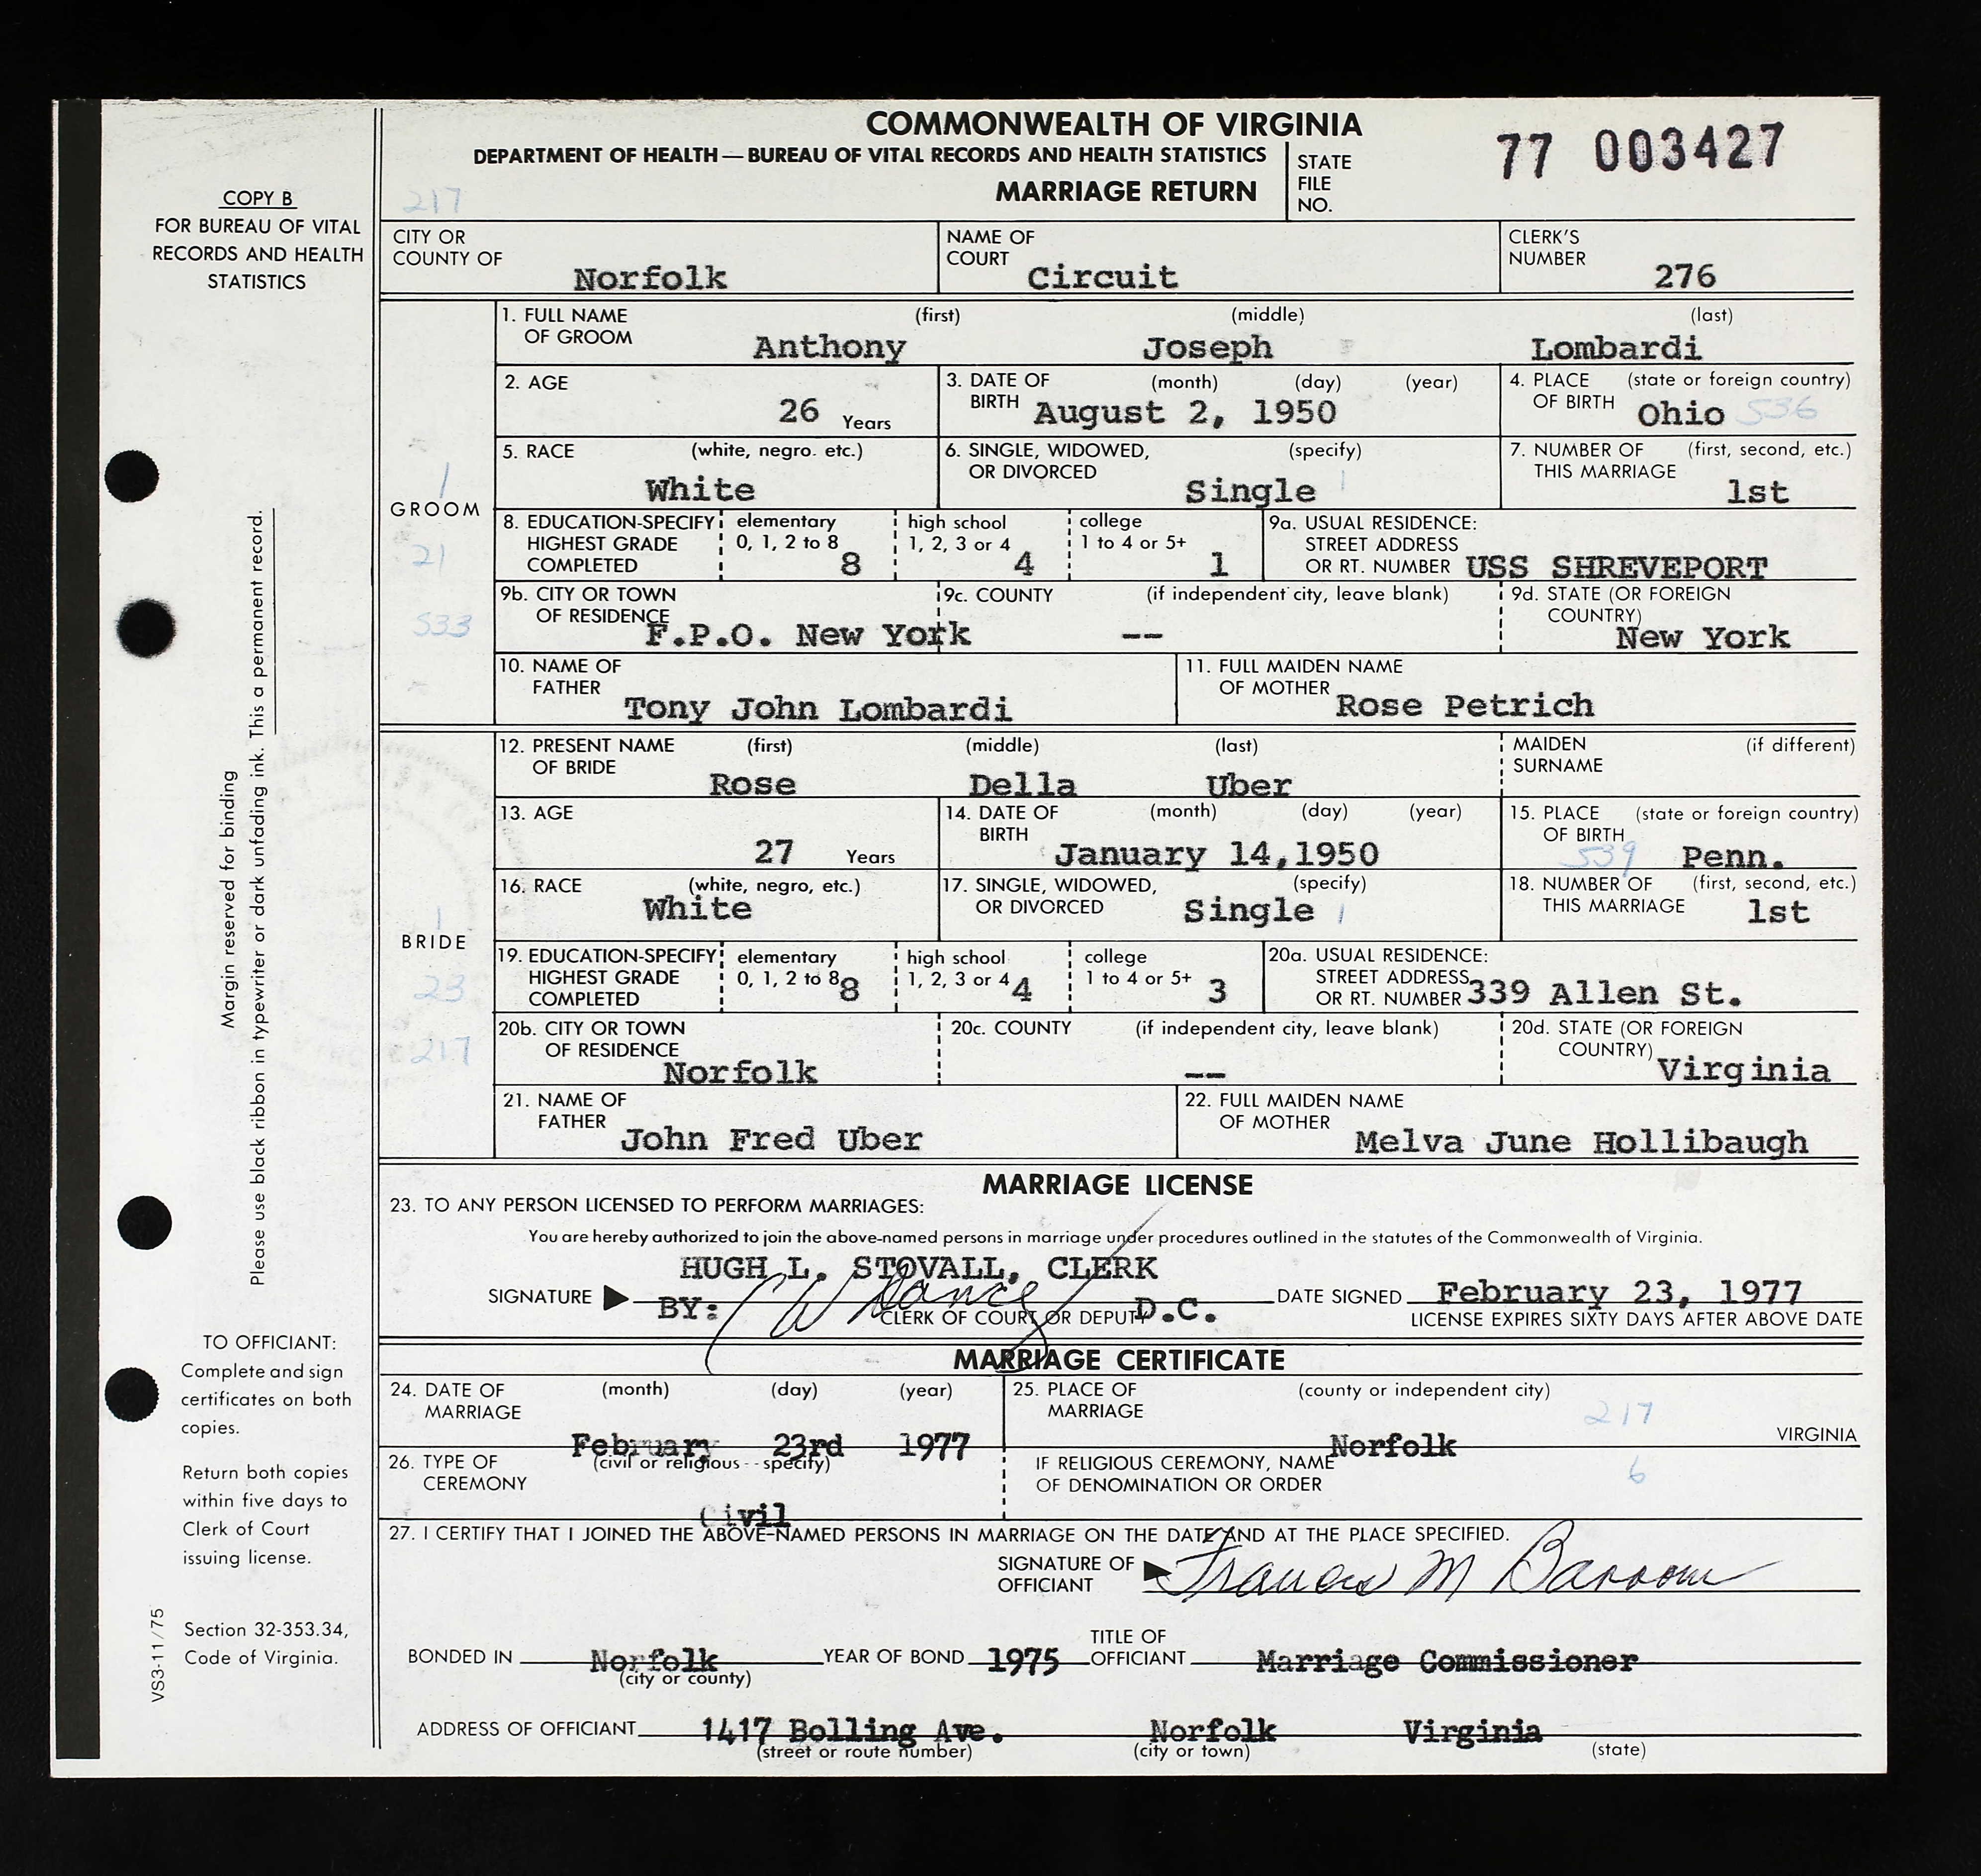 COMMONWEALTH OF VIRGINIA
DEPARTMENT OF HEALTH — BUREAU OF VITAL RECORDS AND HEALTH STATISTICS
MARRIAGE RETURN
STATE FILE NO. 77 003427
217
COPY B
FOR BUREAU OF VITAL
RECORDS AND HEALTH
STATISTICS
CITY OR COUNTY OF Norfolk
NAME OF COURT Circuit
CLERK'S NUMBER 276
GROOM
1
21
533
1. FULL NAME OF GROOM (first) Anthony (middle) Joseph (last) Lombardi
2. AGE 26 Years
3. DATE OF BIRTH (month) (day) (year) August 2, 1950
4. PLACE OF BIRTH (state or foreign country) Ohio 536
5. RACE (white, negro. etc.) White
6. SINGLE, WIDOWED, OR DIVORCED (specify) Single 1
7. NUMBER OF THIS MARRIAGE (first, second, etc.) 1st
8. EDUCATION-SPECIFY HIGHEST GRADE COMPLETED elementary 0, 1, 2 to 8 8 high school 1, 2, 3 or 4 4 college 1 to 4 or 5+ 1
9a. USUAL RESIDENCE: STREET ADDRESS OR RT. NUMBER USS SHREVEPORT
9b. CITY OR TOWN OF RESIDENCE F.P.O. New York
9c. COUNTY (if independent city, leave blank) --
9d. STATE (OR FOREIGN COUNTRY) New York
10. NAME OF FATHER Tony John Lombardi
11. FULL MAIDEN NAME OF MOTHER Rose Petrich
BRIDE
1
23
217
12. PRESENT NAME OF BRIDE (first) Rose (middle) Della (last) Uber
MAIDEN SURNAME (if different)
13. AGE 27 Years
14. DATE OF BIRTH (month) (day) (year) January 14,1950
15. PLACE OF BIRTH (state or foreign country) 539 Penn.
16. RACE (white, negro, etc.) White
17. SINGLE, WIDOWED, OR DIVORCED (specify) Single 1
18. NUMBER OF THIS MARRIAGE (first, second, etc.) 1st
19. EDUCATION-SPECIFY HIGHEST GRADE COMPLETED elementary 0, 1, 2 to 8 8 high school 1, 2, 3 or 4 4 college 1 to 4 or 5+ 3
20a. USUAL RESIDENCE: STREET ADDRESS OR RT. NUMBER 339 Allen St.
20b. CITY OR TOWN OF RESIDENCE Norfolk
20c. COUNTY (if independent city, leave blank) --
20d. STATE (OR FOREIGN COUNTRY) Virginia
21. NAME OF FATHER John Fred Uber
22. FULL MAIDEN NAME OF MOTHER Melva June Hollibaugh
Margin reserved for binding
Please use black ribbon in typewriter or dark unfading ink. This a permanent record.
MARRIAGE LICENSE
23. TO ANY PERSON LICENSED TO PERFORM MARRIAGES:
You are hereby authorized to join the above-named persons in marriage under procedures outlined in the statutes of the Commonwealth of Virginia.
HUGH L. STOVALL, CLERK
SIGNATURE BY: D.C. DATE SIGNED February 23, 1977
CLERK OF COURT OR DEPUTY
LICENSE EXPIRES SIXTY DAYS AFTER ABOVE DATE
MARRIAGE CERTIFICATE
24. DATE OF MARRIAGE (month) (day) (year) February 23rd 1977
25. PLACE OF MARRIAGE (county or independent city) 217 Norfolk VIRGINIA
26. TYPE OF CEREMONY (civil or religious - - specify) Civil
IF RELIGIOUS CEREMONY, NAME OF DENOMINATION OR ORDER 6
27. I CERTIFY THAT I JOINED THE ABOVE-NAMED PERSONS IN MARRIAGE ON THE DATE AND AT THE PLACE SPECIFIED.
SIGNATURE OF OFFICIANT Francis M
BONDED IN Norfolk YEAR OF BOND 1975 TITLE OF OFFICIANT Marriage Commissioner
(city or county)
ADDRESS OF OFFICIANT 1417 Bolling Ave. Norfolk Virginia
(street or route number) (city or town) (state)
TO OFFICIANT:
Complete and sign
certificates on both
copies.
Return both copies
within five days to
Clerk of Court
issuing license.
Section 32-353.34,
Code of Virginia.
VS3-11/75